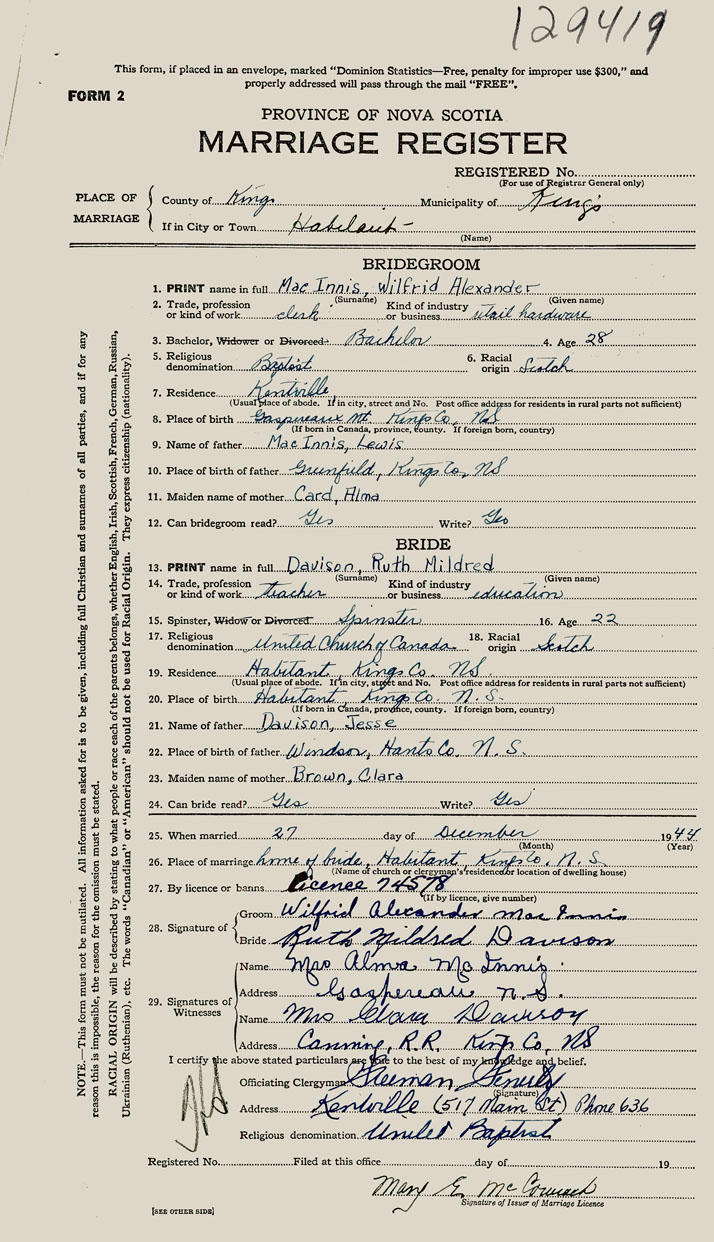 129419
This form, if placed in an envelope, marked "Dominion Statistics—Free, penalty for improper use $300," and
properly addressed will pass through the mail "FREE".
FORM 2
PROVINCE OF NOVA SCOTIA
MARRIAGE REGISTER
REGISTERED No.
(For use of Registrar General only)
PLACE OF MARRIAGE
County of Kings Municipality of King's
If in City or Town Habitant
(Name)
BRIDEGROOM
1. PRINT name in full Mac Innis, Wilfrid Alexander
(Surname) (Given name)
2. Trade, profession or kind of work clerk Kind of industry or business retail hardware
3. Bachelor, Widower or Divorced Bachelor 4. Age 28
5. Religious denomination Baptist 6. Racial origin Scotch
7. Residence Kentville
(Usual place of abode. If in city, street and No. Post office address for residents in rural parts not sufficient)
8. Place of birth Gaspereaux Mt. Kings Co, NS
(If born in Canada, province, county. If foreign born, country)
9. Name of father Mac Innis, Lewis
10. Place of birth of father Greenfield, Kings Co, NS
11. Maiden name of mother Card, Alma
12. Can bridegroom read? Yes Write? Yes
BRIDE
13. PRINT name in full Davison, Ruth Mildred
(Surname) (Given name)
14. Trade, profession or kind of work teacher Kind of industry or business education
15. Spinster, Widow or Divorced Spinster 16. Age 22
17. Religious denomination United Church of Canada 18. Racial origin Scotch
19. Residence Habitant, Kings Co. NS
(Usual place of abode. If in city, street and No. Post office address for residents in rural parts not sufficient)
20. Place of birth Habitant, Kings Co. N.S.
(If born in Canada, province, county. If foreign born, country)
21. Name of father Davison, Jesse
22. Place of birth of father Windsor, Hants Co. N.S.
23. Maiden name of mother Brown, Clara
24. Can bride read? Yes Write? Yes
25. When married 27 day of December 1944
(Month) (Year)
26. Place of marriage home of bride, Habitant, Kings Co. N.S.
(Name of church or clergyman's residence or location of dwelling house)
27. By licence or banns Licence 74578
(If by licence, give number)
28. Signature of
Groom Wilfrid Alexander Mac Innis
Bride Ruth Mildred Davison
29. Signatures of Witnesses
Name Mrs Alma McInnis
Address Gaspereau N.S.
Name Mrs Clara Davison
Address Canning, R.R. Kings Co, NS
I certify the above stated particulars are true to the best of my knowledge and belief.
Officiating Clergyman Freeman
(Signature)
Address Kentville (517 Main St) Phone 636
Religious denomination United Baptist
Registered No. Filed at this office day of 19
Mary E. McCormack
Signature of Issuer of Marriage Licence
[SEE OTHER SIDE]
NOTE.—This form must not be mutilated. All information asked for is to be given, including full Christian and surnames of all parties, and if for any
reason this is impossible, the reason for the omission must be stated.
RACIAL ORIGIN will be described by stating to what people or race each of the parents belongs, whether English, Irish, Scottish, French, German, Russian,
Ukrainian (Ruthenian), etc. The words "Canadian" or "American" should not be used for Racial Origin. They express citizenship (nationality).